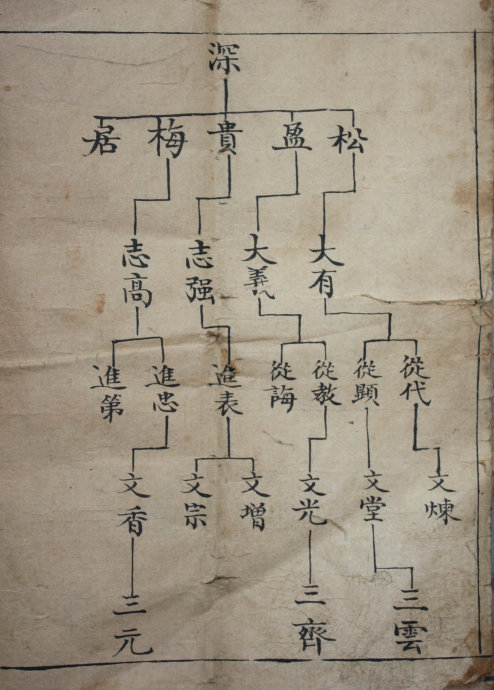 深
松 盈 貴 梅 居
大有 大義 志强 志高
從代 從顯 從教 從誨 進表 進忠 進第
文煉 文堂 文光 文增 文宗 文香
三雲 三齊 三元